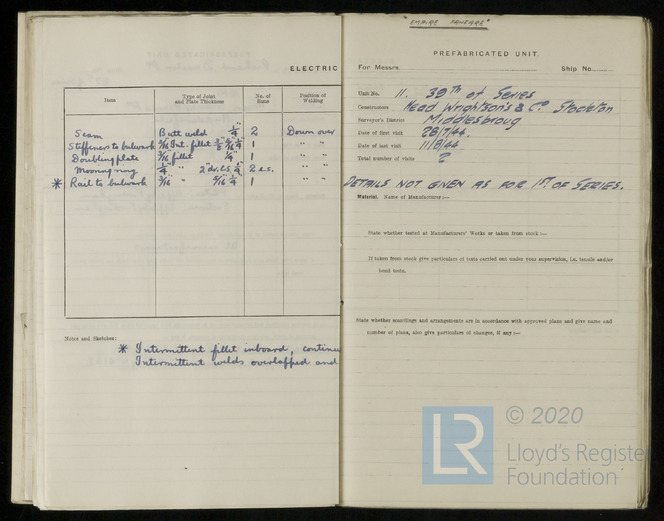 ELECTRIC
Item
Type of Joint and Plate Thickness
No. of Runs
Position of Welding
Seam Butt weld 1/4" 2 Down over
Stiffeners to bulwark 3/16 Int. fillet 5/16 1/4" 1 " "
Doubling plate 3/16 fillet 1/4" 1 " "
Mooring ring 1/4" " 2" dr. C.S. 1/4" 2 e.s. " "
* Rail to bulwark 3/16 " 5/16" 1/4" 1 " "
Notes and Sketches:
* Intermittent fillet inboard, continu
Intermittent welds overlapped and
"EMPIRE FANFARE"
PREFABRICATED UNIT.
For Messrs. Ship No.
Unit No. 11. 39th of Series
Construction Head Wrightson's & Co. Stockton
Surveyor's District Middlesbroug
Date of first visit 28/7/44.
Date of last visit 11/8/44
Total number of visits ?
DETAILS NOT GIVEN AS FOR 1ST OF SERIES.
Material. Name of Manufacturer :—
State whether tested at Manufacturers' Works or taken from stock :—
If taken from stock give particulars of tests carried out under your supervision, i.e. tensile and/or
bend tests.
State whether scantlings and arrangements are in accordance with approved plans and give name and
number of plans, also give particulars of changes, if any :—
LR
© 2020
Lloyd's Register
Foundation